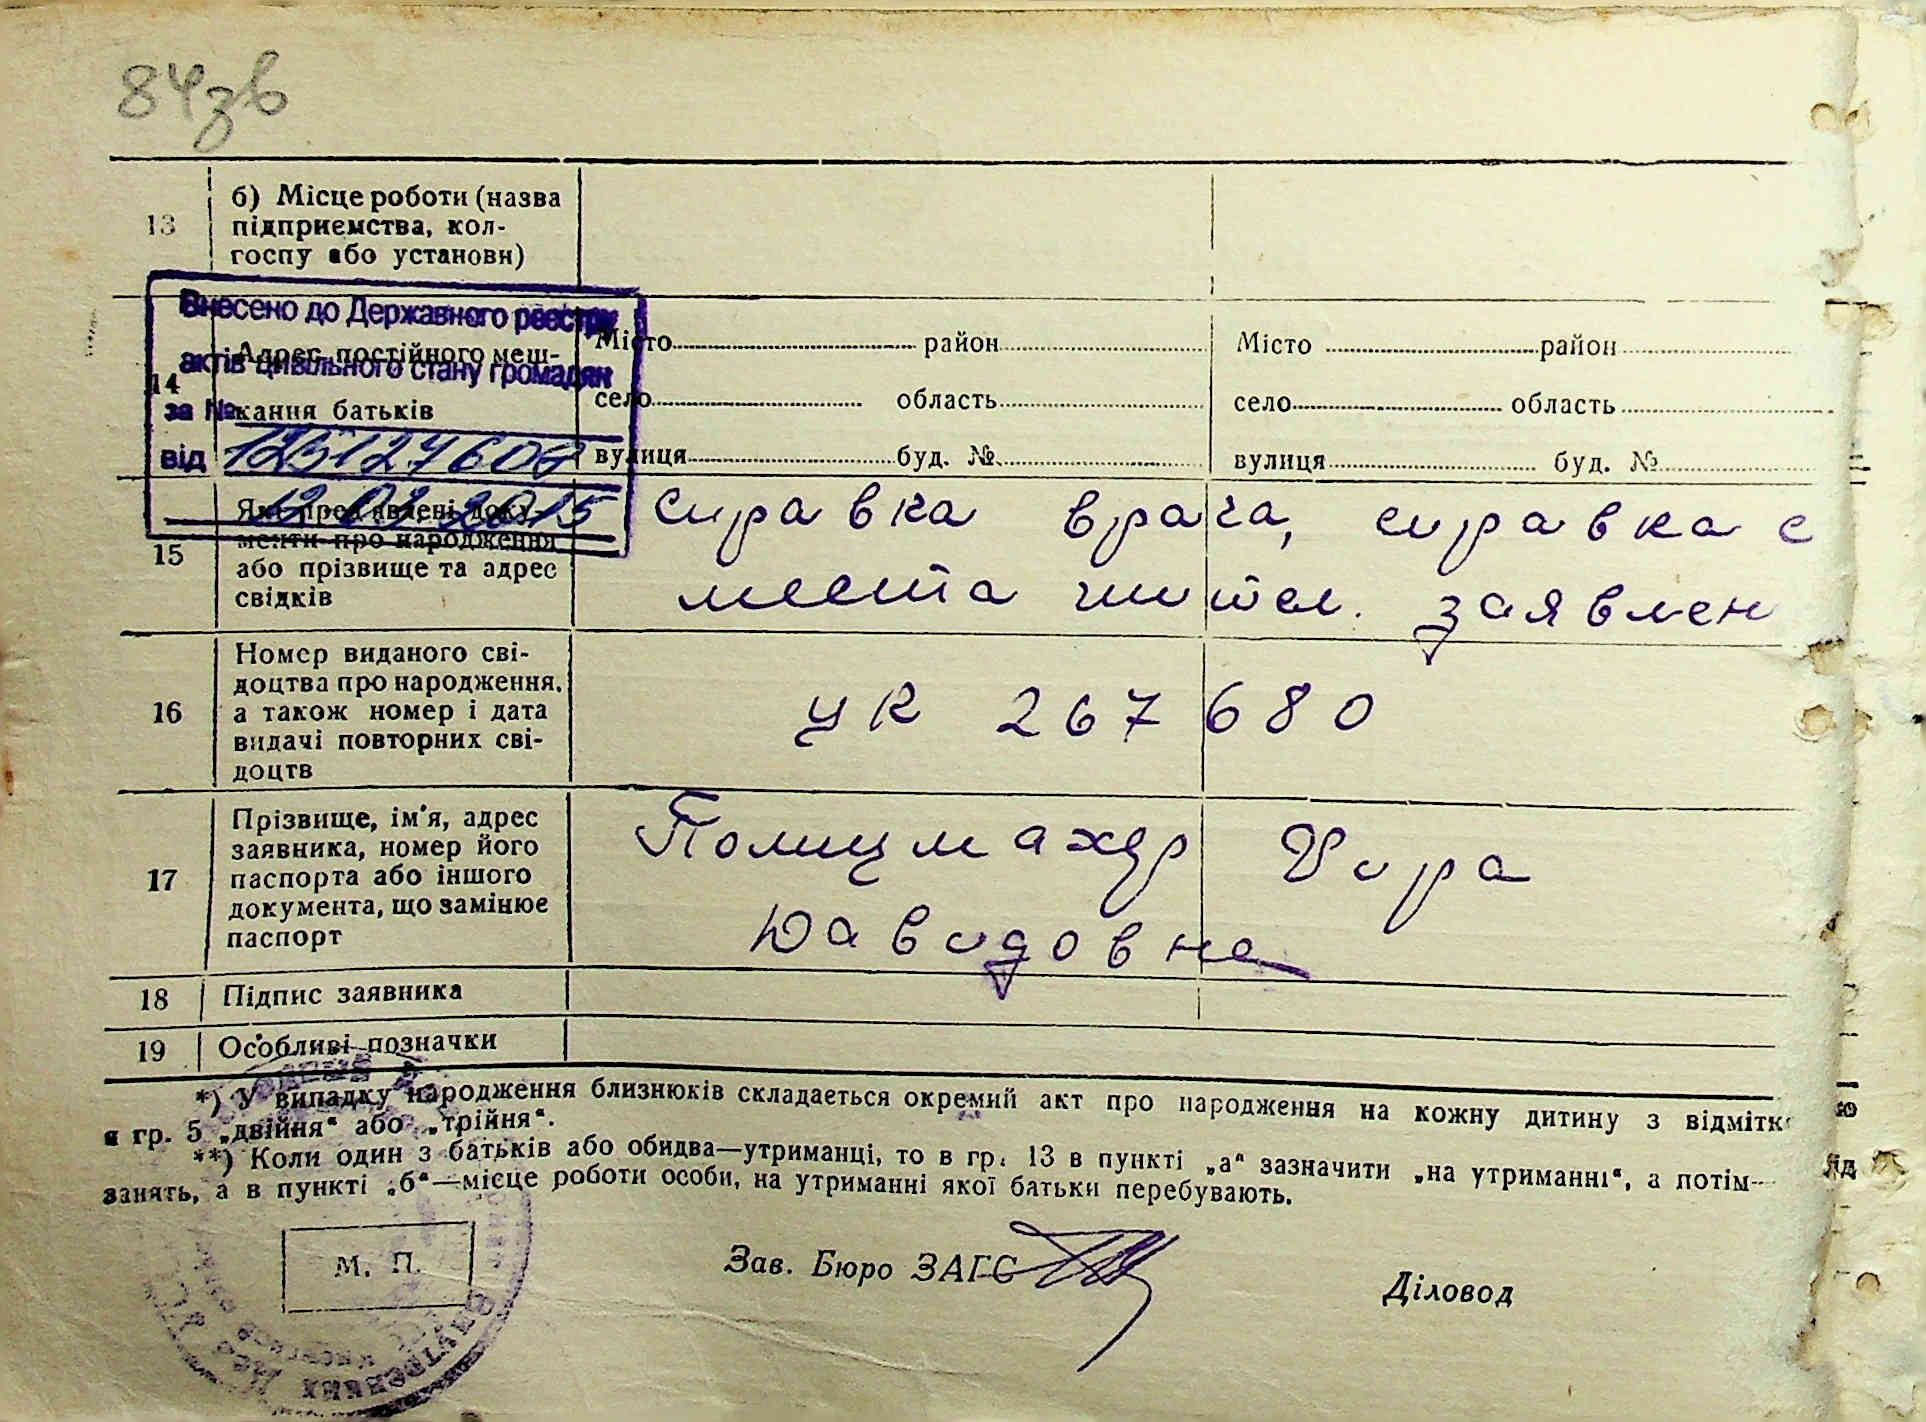 84зв
13
б) Місце роботи (назва
підприємства, кол-
госпу або установи)
Внесено до Державного реєстру
актів цивільного стану громадян
за №
від 125127607
12.02.2015
14
Адрес постійного меш-
кання батьків
Місто район Місто район
село область село область
вулиця буд. № вулиця буд. №
15
Які пред'явлені доку-
менти про народження
або прізвище та адрес
свідків
справка врача, справка с
места жител. заявлен
16
Номер виданого сві-
доцтва про народження,
а також номер і дата
видачі повторних сві-
доцтв
УК 267680
17
Прізвище, ім'я, адрес
заявника, номер його
паспорта або іншого
документа, що замінює
паспорт
Полицмахер Ира
Давидовна
18 Підпис заявника
19 Особливі позначки
*) У випадку народження близнюків складається окремий акт про народження на кожну дитину з відмітк
в гр. 5 „двійня“ або „трійня“.
**) Коли один з батьків або обидва—утриманці, то в гр. 13 в пункті „а“ зазначити „на утриманні“, а потім—
занять, а в пункті „б“—місце роботи особи, на утриманні якої батьки перебувають.
М. П.
Зав. Бюро ЗАГС
Діловод
Внутренних Дел